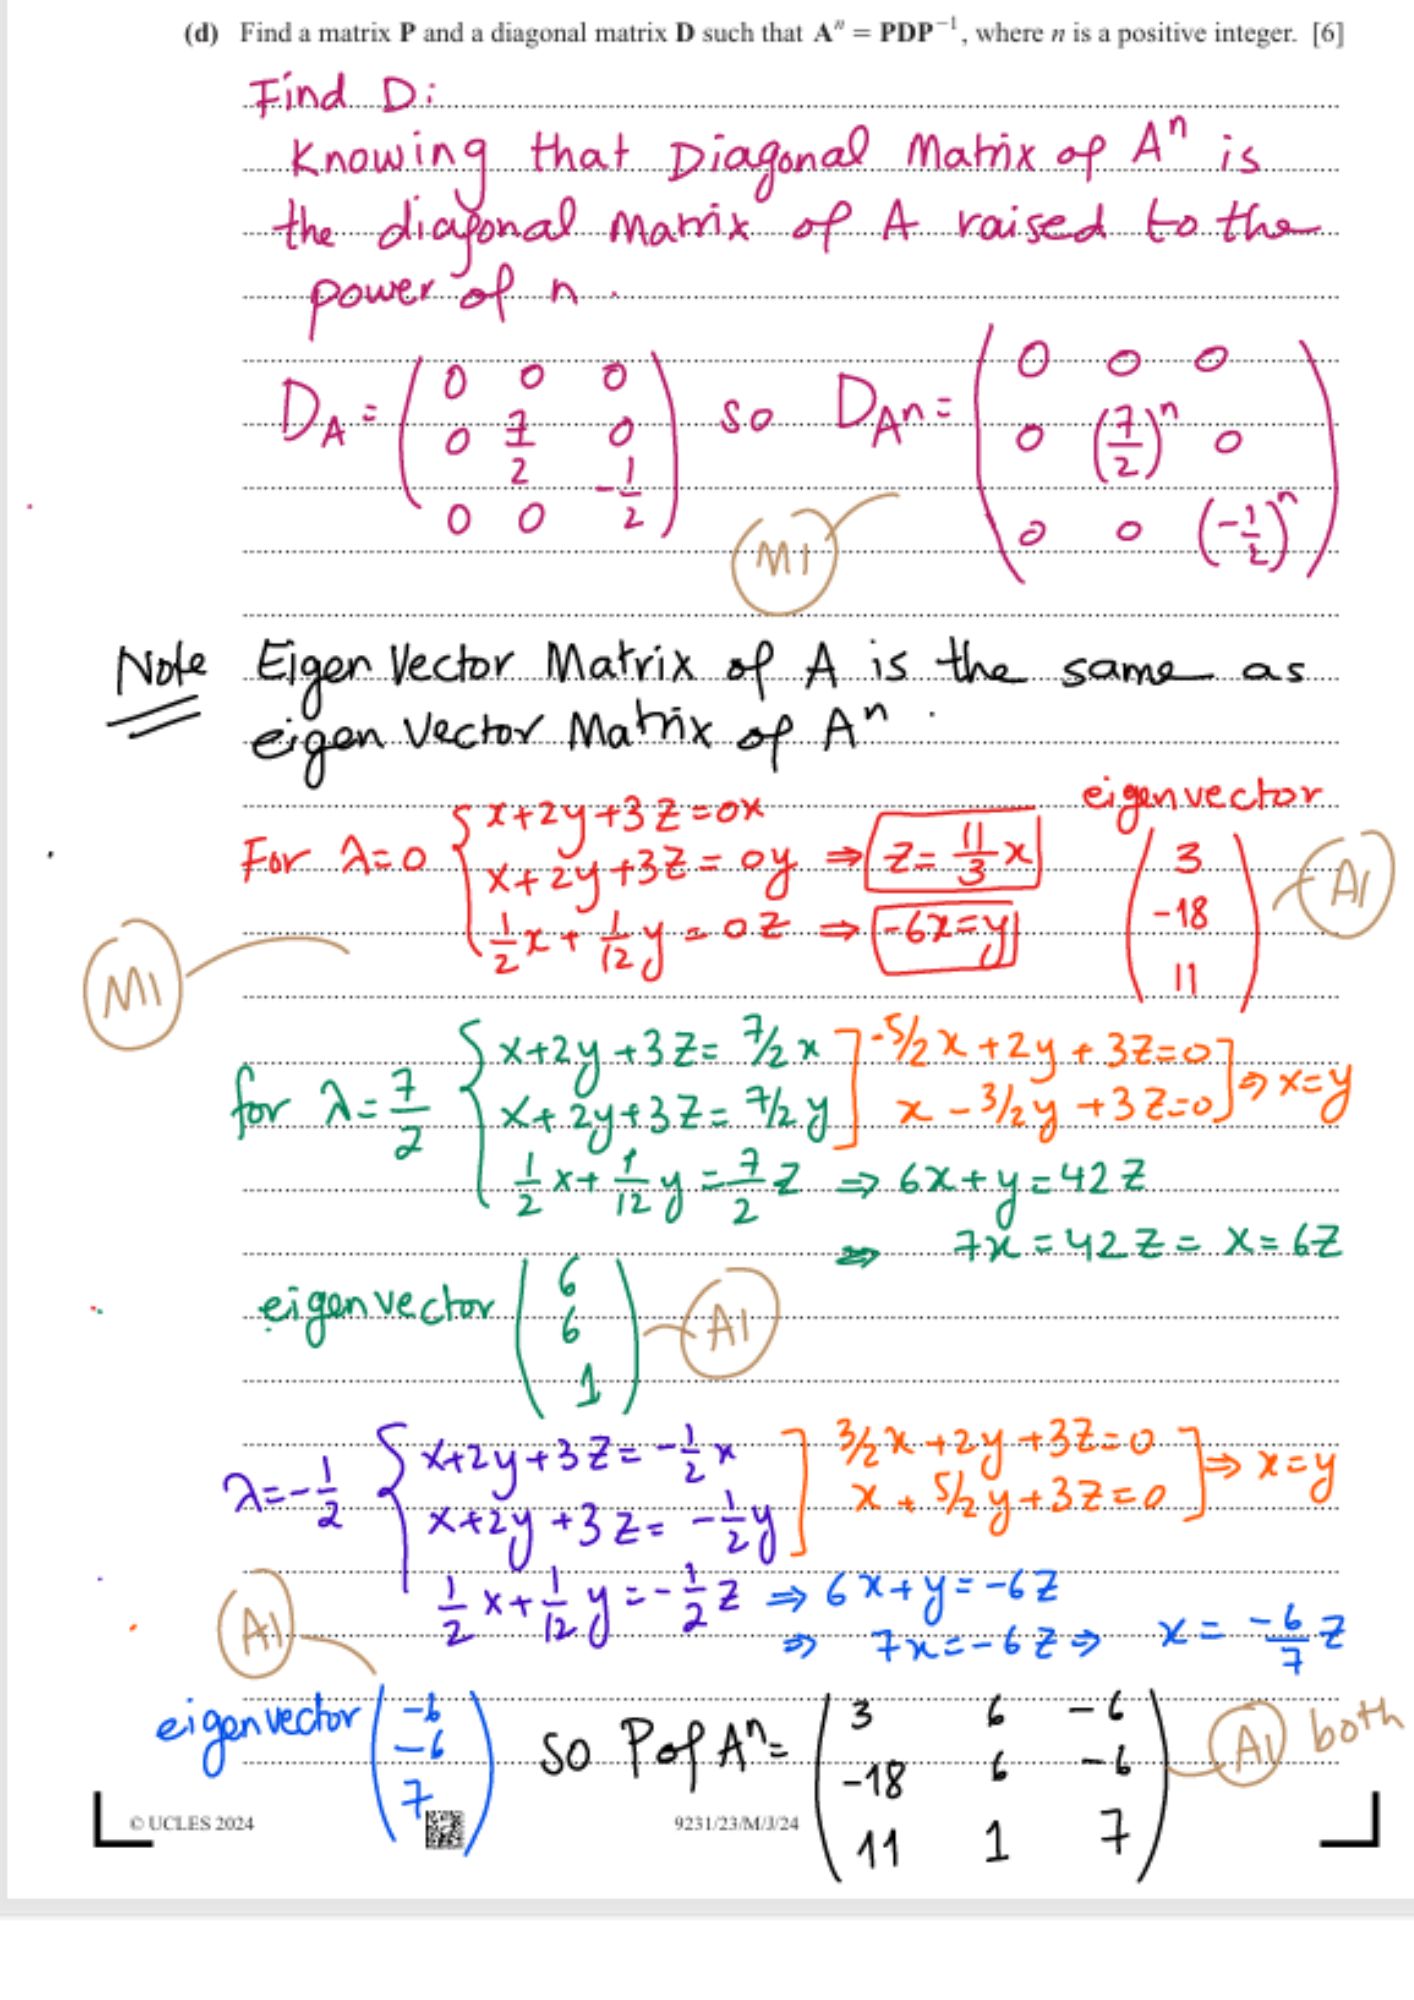 (d) Find a matrix P and a diagonal matrix D such that Aⁿ = PDP⁻¹, where n is a positive integer. [6]
Find D:
Knowing that Diagonal Matrix of Aⁿ is
the diagonal matrix of A raised to the
power of n.
D_A = (0 0 0; 0 7/2 0; 0 0 -1/2) so D_Aⁿ = (0 0 0; 0 (7/2)ⁿ 0; 0 0 (-1/2)ⁿ)
M1
Note Eigen Vector Matrix of A is the same as
eigen Vector Matrix of Aⁿ.
For λ=0 { x+2y+3z=0x
x+2y+3z=0y ⇒ z = 11/3 x
1/2 x + 1/12 y = 0z ⇒ -6x=y
eigenvector (3 -18 11) A1
M1
for λ=7/2 { x+2y+3z= 7/2 x ] -5/2 x+2y+3z=0
x+2y+3z= 7/2 y ] x - 3/2 y +3z=0 ] ⇒ x=y
1/2 x + 1/12 y = 7/2 z ⇒ 6x+y=42z
⇒ 7x=42z = x=6z
eigenvector (6 6 1) A1
λ=-1/2 { x+2y+3z= -1/2 x ] 3/2 x+2y+3z=0
x+2y+3z= -1/2 y ] x + 5/2 y+3z=0 ] ⇒ x=y
1/2 x + 1/12 y = -1/2 z ⇒ 6x+y=-6z
⇒ 7x=-6z ⇒ x= -6/7 z
A1
eigenvector (-6 -6 7) so P of Aⁿ = (3 6 -6; -18 6 -6; 11 1 7) A1 both
© UCLES 2024 9231/23/M/J/24